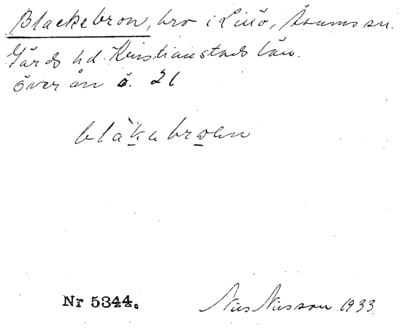 Blackebron, bro i Liiö, Åsums sn.
Gärds hd. Kristianstads län.
över ån ö. 21
blàkabroen
Nr 5344. Nils Nilsson 1933.